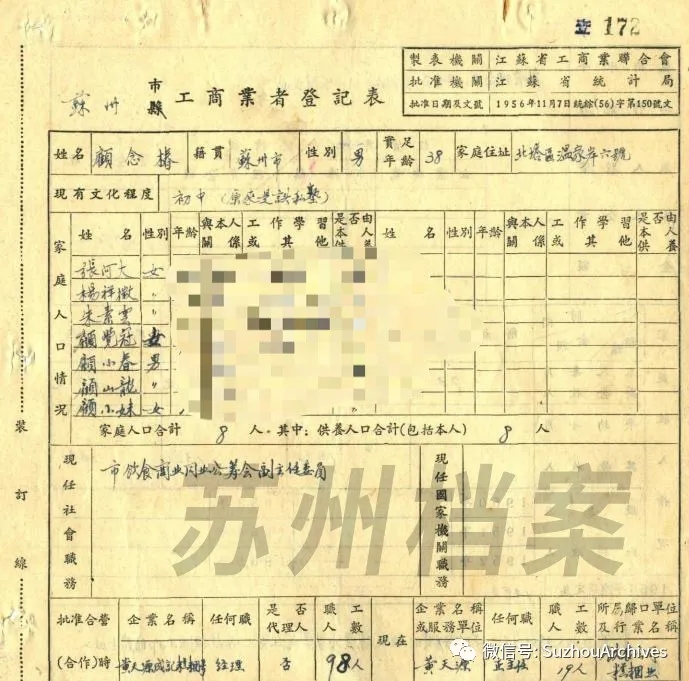 172
製表機關 江蘇省工商業聯合會
批准機關 江蘇省統計局
批准日期及文號 1956年11月7日統綜(56)字第150號文
蘇州 市縣 工商業者登記表
姓名 顧念椿 籍貫 蘇州市 性別 男 實足年齡 38 家庭住址 北塔區溫家岸六號
現有文化程度 初中
家庭人口情況
姓名 性別 年齡 與本人關係 工作學習或其他 是否由本人供養 姓名 性別 年齡 與本人關係 工作學習或其他 是否由本人供養
張河大 女
楊祥徵 〃
朱素雲 〃
顧覺冠 女
顧小春 男
顧山龍 〃
顧小妹 女
家庭人口合計 8 人。其中：供養人口合計(包括本人) 8 人
現任社會職務 市飲食商業同業公籌會副主任委員 現任國家機關職務
苏州档案
裝訂線
批准合營(合作)時 企業名稱 任何職 是否代理人 職工人數 現在 企業名稱或服務單位 任何職 職工人數 所屬歸口單位及行業名稱
黃天源 經理 否 98人 黃天源 19人
微信号: SuzhouArchives